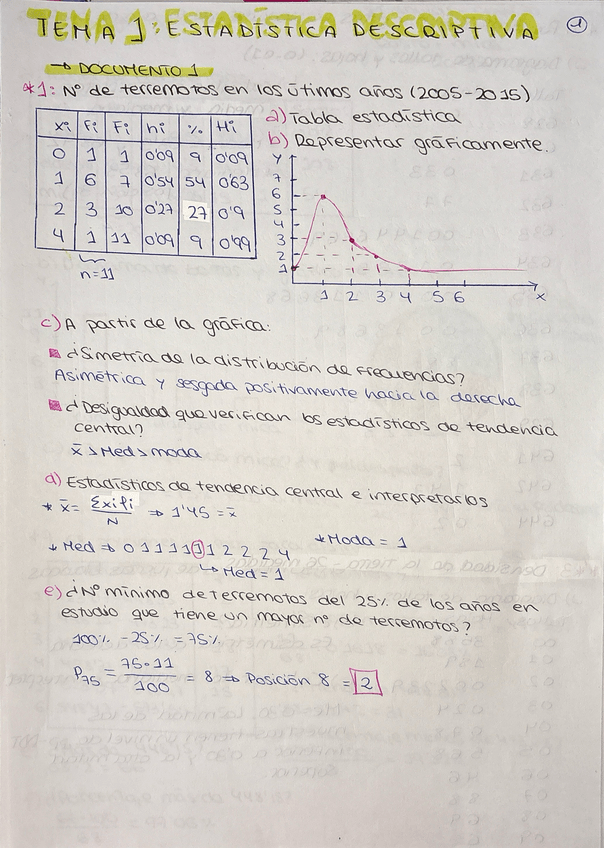 TEMA 1: ESTADÍSTICA DESCRIPTIVA 1
→ DOCUMENTO 1
*1: Nº de terremotos en los útimos años (2005-2015)
xi fi Fi hi % Hi
0 1 1 0'09 9 0'09
1 6 7 0'54 54 0'63
2 3 10 0'27 27 0'9
4 1 11 0'09 9 0'99
n=11
a) Tabla estadística
b) Representar gráficamente.
y
7
6
5
4
3
2
1
1 2 3 4 5 6 x
c) A partir de la gráfica:
¿Simetría de la distribución de frecuencias?
Asimétrica y sesgada positivamente hacia la derecha
¿Desigualdad que verifican los estadísticos de tendencia
central?
x̄ > Med > moda
d) Estadísticos de tendencia central e interpretarlos
* x̄ = Σxifi / N ⇒ 1'45 = x̄
* Med ⇒ 0 1 1 1 1 1 1 2 2 2 4
↳ Med = 1
* Moda = 1
e) ¿Nº mínimo de terremotos del 25% de los años en
estudio que tiene un mayor nº de terremotos?
100% - 25% = 75%
P75 = 75·11 / 100 = 8 → Posición 8 = 2